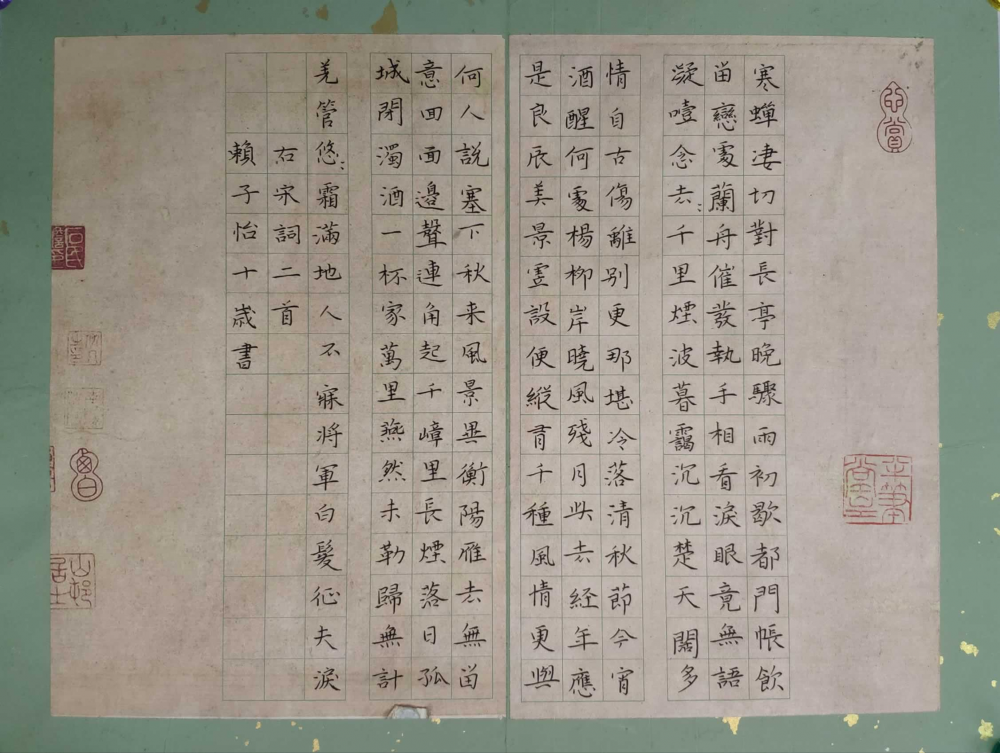 寒蟬淒切對長亭晚驟雨初歇都門帳飲
畄戀處蘭舟催發執手相看淚眼竟無語
凝噎念去:千里煙波暮靄沉沉楚天闊多
情自古傷離別更那堪冷落清秋節今宵
酒醒何處楊柳岸曉風殘月此去経年應
是良辰美景虛設便縱有千種風情更與
何人說塞下秋来風景異衡陽雁去無畄
意四面邊聲連角起千嶂里長煙落日孤
城閉濁酒一杯家萬里燕然未勒歸無計
羌管悠:霜滿地人不寐將軍白髮征夫淚
右宋詞二首
賴子怡十歲書